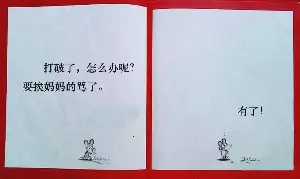 打破了，怎么办呢？
要挨妈妈的骂了。
有了！